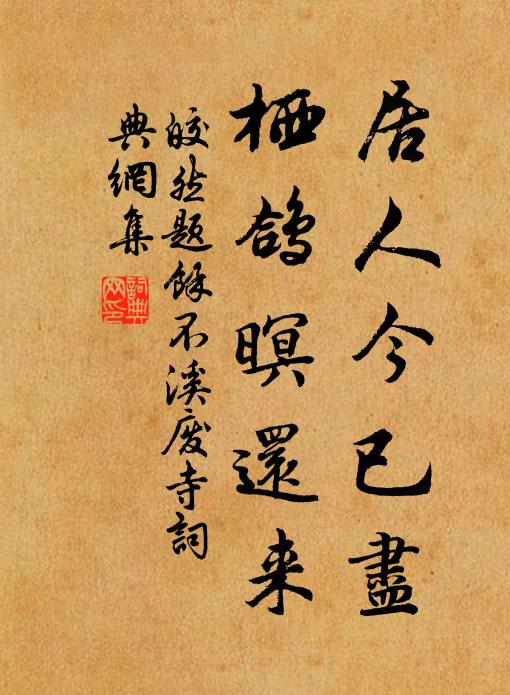 居人今已盡
栖鴿暝還来
皎然題餘不溪廢寺詞
典網集
詞典網印